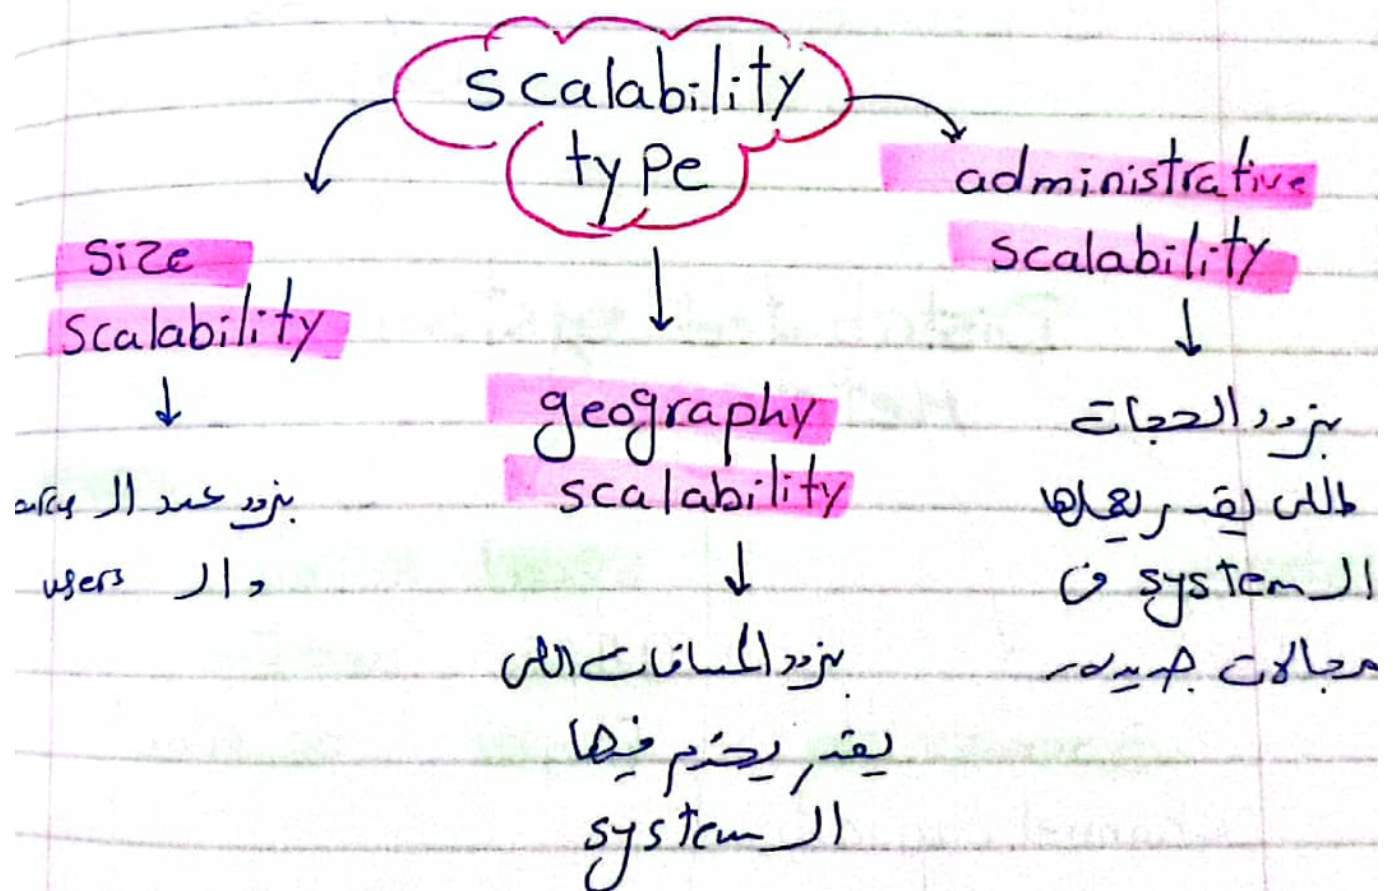 scalability
type
size
scalability
بنزود عدد ال
وال users
geography
scalability
بنزود المسافات اللى
يقدر يخدم فيها
ال system
administrative
scalability
بنزود الحجات
اللى يقدر يعملها
ال system فى
مجالات جديده